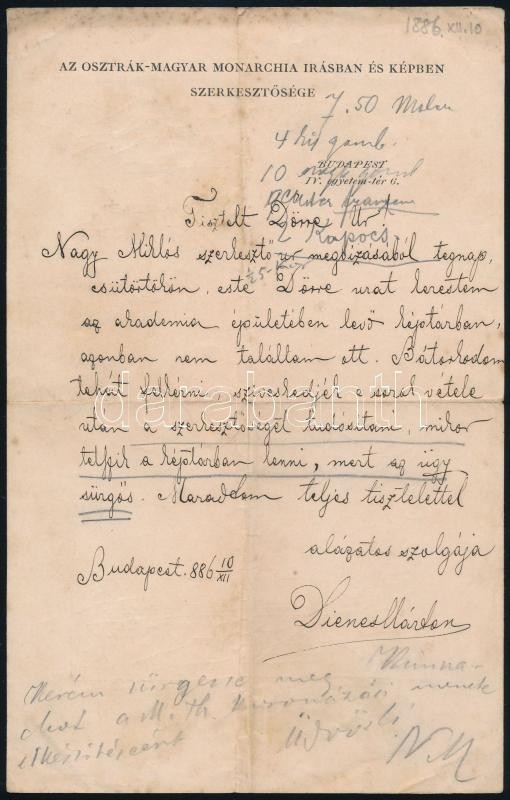 1886. XII. 10
AZ OSZTRÁK-MAGYAR MONARCHIA IRÁSBAN ÉS KÉPBEN
SZERKESZTŐSÉGE
7.50
4
10
BUDAPEST
IV. egyetem-tér 6.
Tisztelt Dörre Ur
Kapocs
Nagy Miklós szerkesztő ur megbizásából tegnap,
csütörtökön, este Dörre urat kerestem
az akademia épületében levő képtárban,
azonban nem találtam ott. Bátorkodom
tehát felkérni, sziveskedjék e sorok vétele
után a szerkesztőséget tudósitani, mikor
tetszik a képtárban lenni, mert az ügy
sürgős. Maradtam teljes tisztelettel
alázatos szolgája
Budapest. 886 10/XII
Dienes Márton
Kérem sürgesse meg
a M. Th. koronázási menet
elkészítéseért
Üdvözli
NM
darabanth